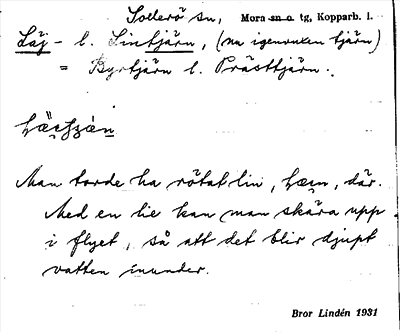 Sollerö sn, Mora sn o. tg, Kopparb. l.
Läj- l. Lintjärn, (nu igenvuxen tjärn)
= Byrtjärn l. Prästtjärn.
Man torde ha rötat lin, där.
Med en lie kan man skära upp
i flyet, så att det blir djupt
vatten inunder.
Bror Lindén 1931